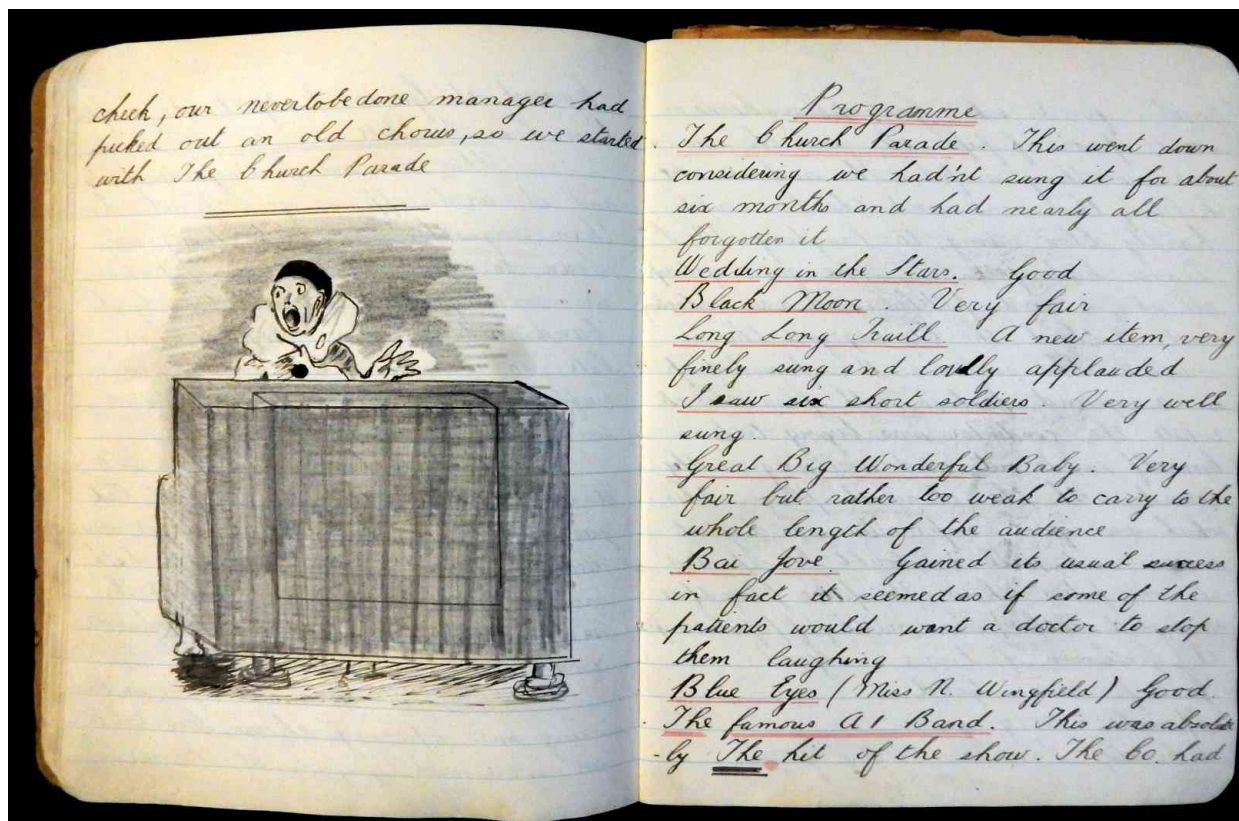 cheek, our nevertobedone manager had
picked out an old chorus, so we started
with The Church Parade
Programme
The Church Parade. This went down
considering we had'nt sung it for about
six months and had nearly all
forgotten it
Wedding in the Stars. Good
Black Moon. Very fair
Long Long Traill. A new item, very
finely sung and loudly applauded
I saw six short soldiers. Very well
sung.
Great Big Wonderful Baby. Very
fair but rather too weak to carry to the
whole length of the audience
Bai Jove. Gained its usual success
in fact it seemed as if some of the
patients would want a doctor to stop
them laughing
Blue Eyes (Miss N. Wingfield) Good.
The famous A1 Band. This was absolute
-ly The hit of the show. The Co. had